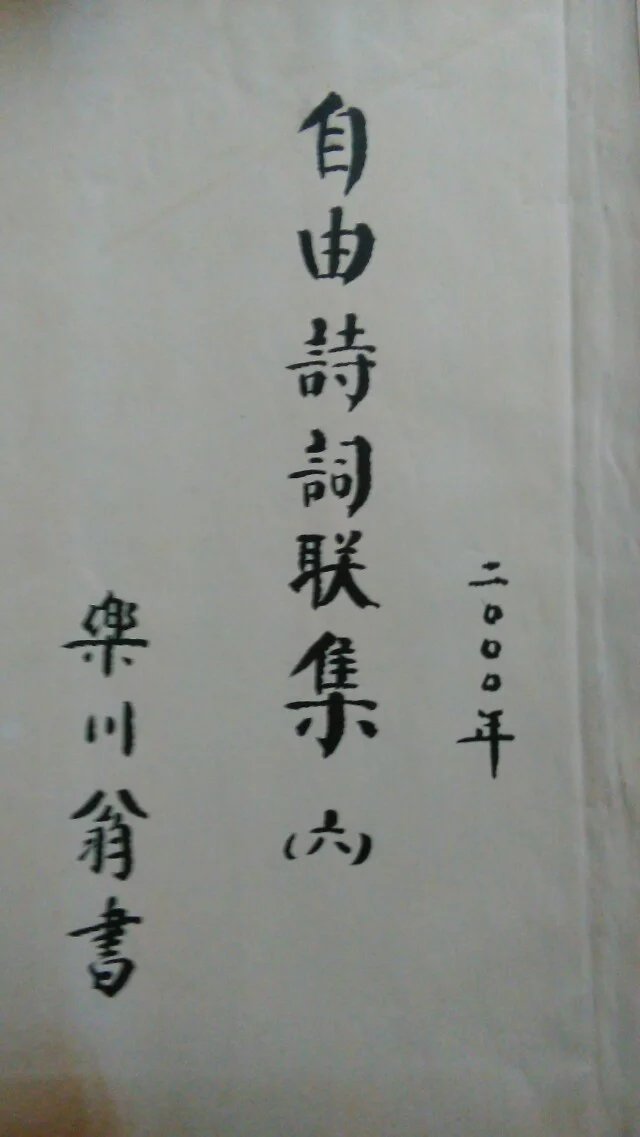 二000年
自由詩詞联集(六)
樂川翁書